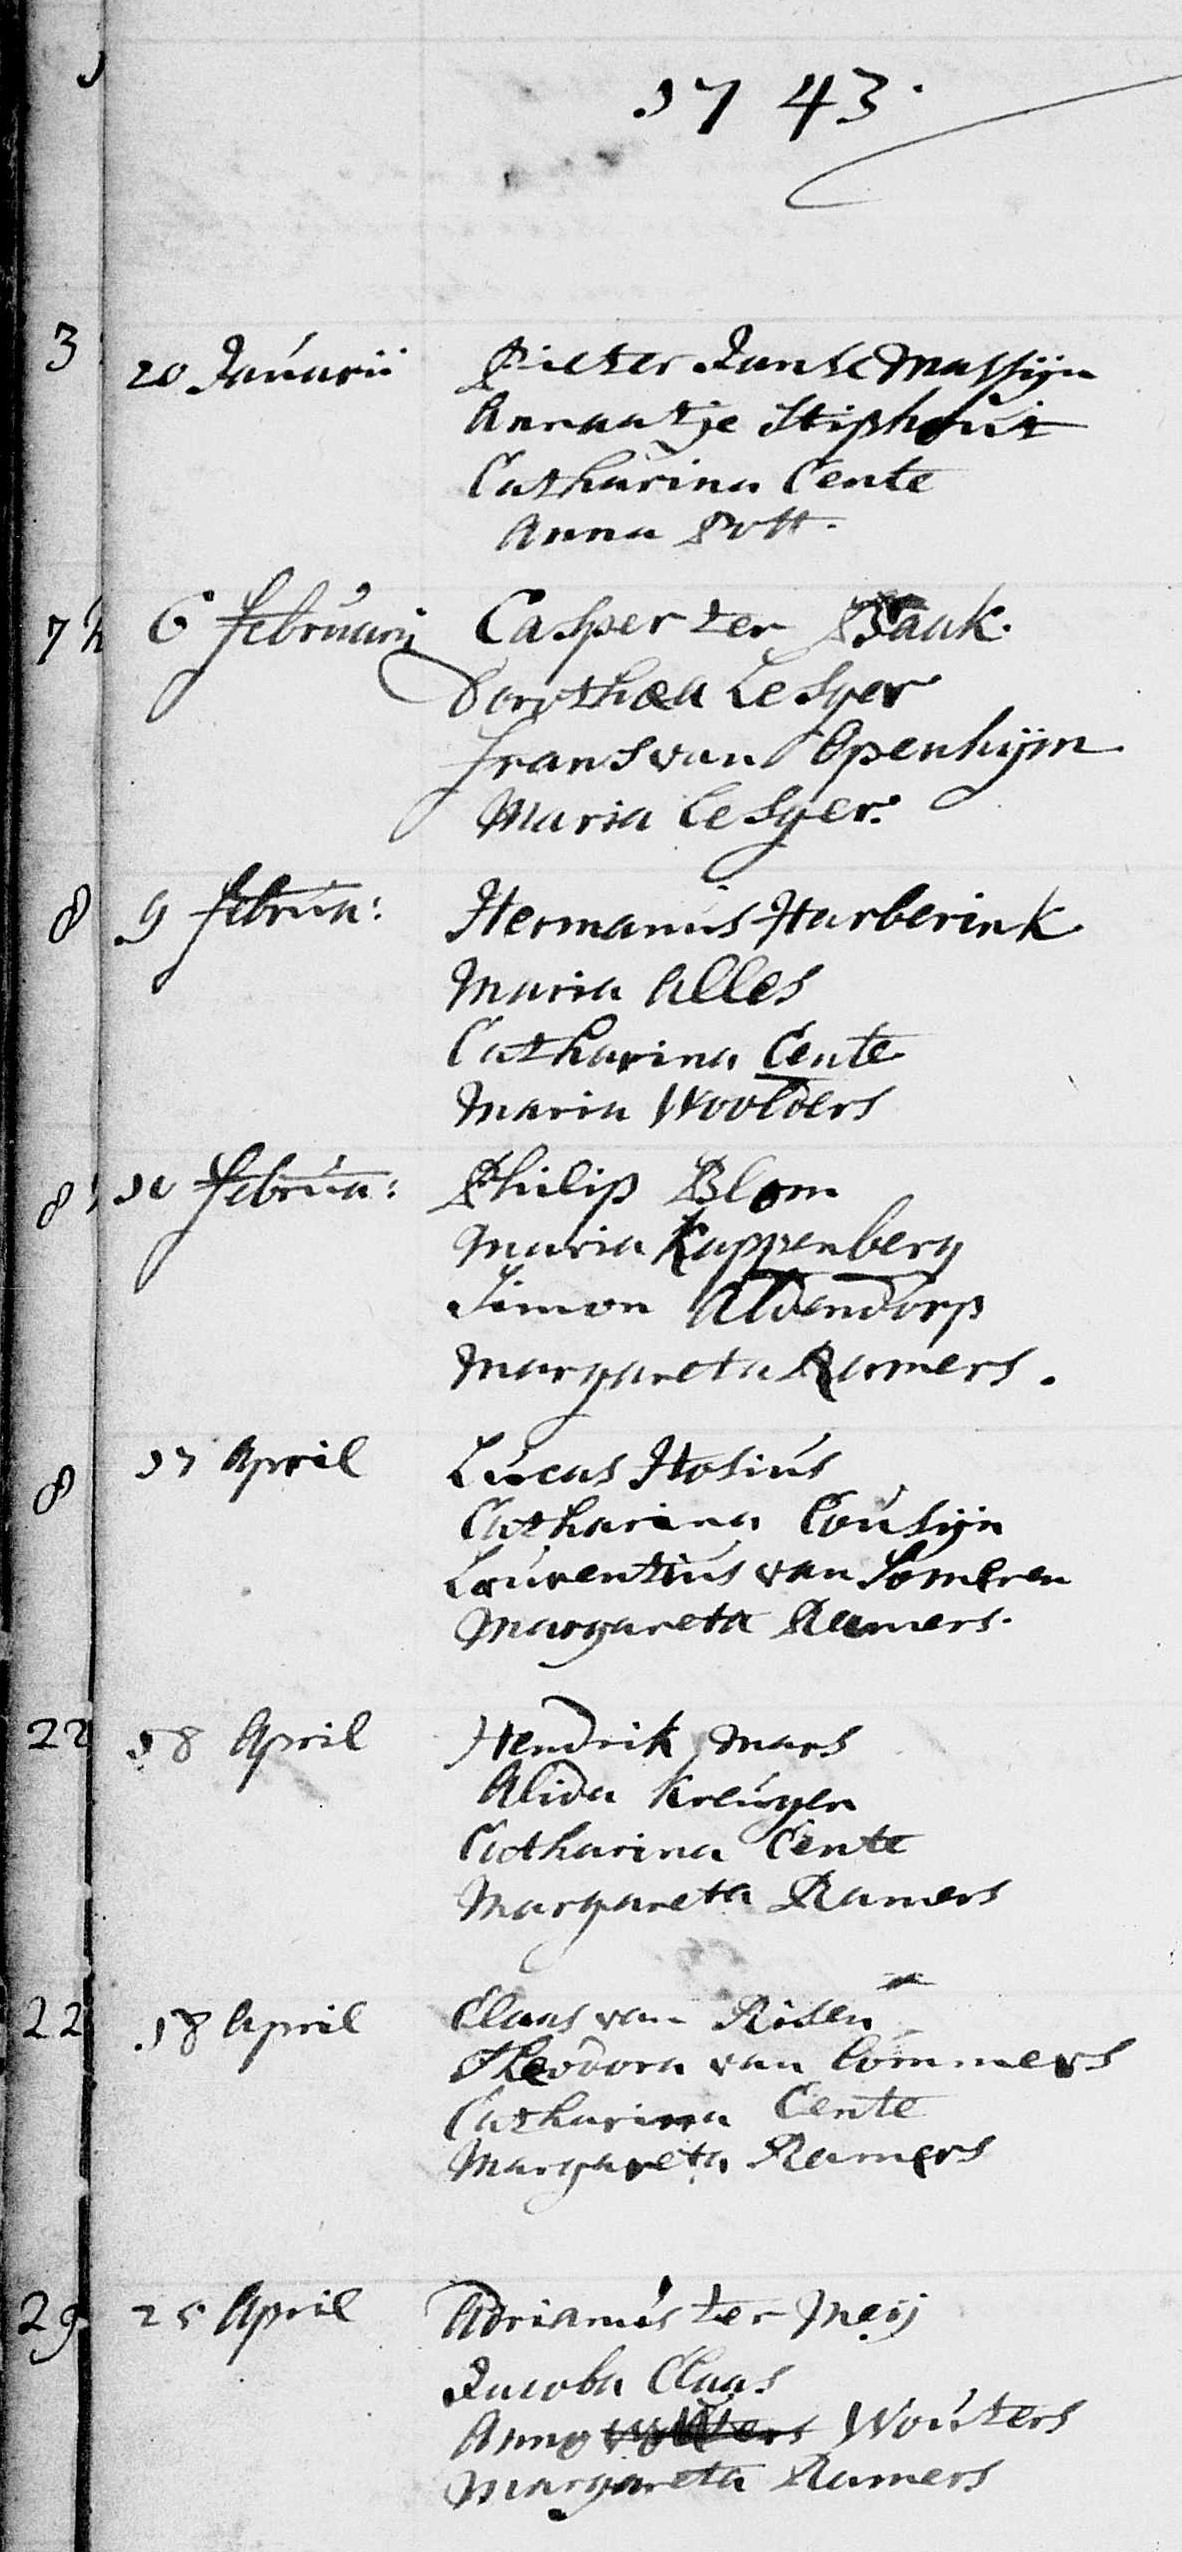 1743.
3
20 Januarii Pieter Janse Massijn
Annaatje Stiphout
Catharina Cente
Anna Pott.
7
6 Februarij Casper ter Braak.
Dorothea Le Syer
Frans van Openhijm
Maria Le Syer.
8
9 Februa: Hermanus Harberink
Maria Alles
Catharina Cente
Maria Woolders
8
10 Februa: Philip Blom
Maria Kappenberg
Simon Aldendorp
Margareta Ramers.
8
17 April Lucas Hosius
Catharina Cousijn
Laurentius van Someren
Margareta Ramers.
22
18 April Hendrik Mars
Alida Kreuyen
Catharina Cente
Margareta Ramers
22
18 April Claas van Risen
Theodora van Commers
Catharina Cente
Margareta Ramers
29
25 April Adrianus ter Meij
Jacoba Claas
Anna Wouters
Margareta Ramers